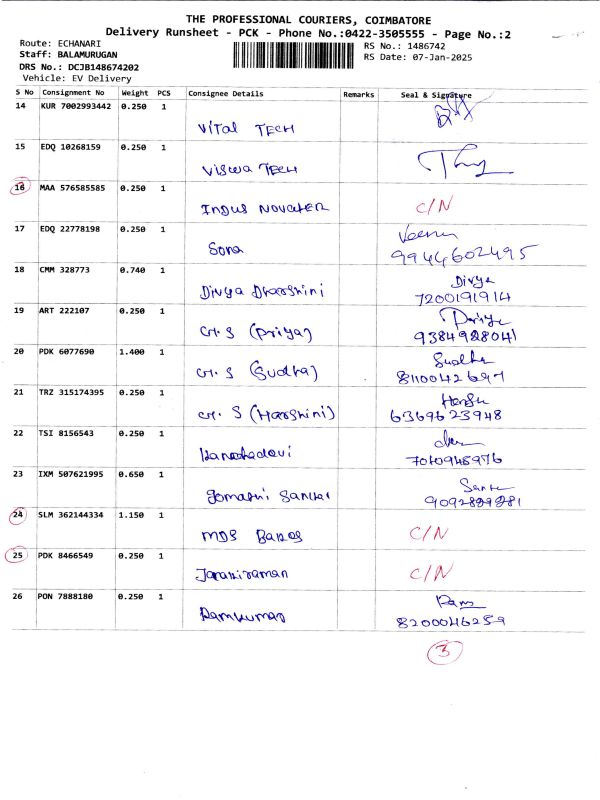 THE PROFESSIONAL COURIERS, COIMBATORE
Delivery Runsheet - PCK - Phone No.:0422-3505555 - Page No.:2
Route: ECHANARI
RS No.: 1486742
Staff: BALAMURUGAN
RS Date: 07-Jan-2025
DRS No.: DCJB148674202
Vehicle: EV Delivery
S No Consignment No Weight PCS Consignee Details Remarks Seal & Signature
14 KUR 7002993442 0.250 1
Vital TECH
15 EDQ 10268159 0.250 1
Viswa TECH
16 MAA 576585585 0.250 1
INDUS NOVATEER C/N
17 EDQ 22778198 0.250 1
Sona 9944602495
18 CMM 328773 0.740 1 Divya
Divya Dharshini 7200191914
19 ART 222107 0.250 1
S (Priya) 9384928041
20 PDK 6077690 1.400 1 Sudha
S (Sudha)
21 TRZ 315174395 0.250 1
S (Harshini) 6369623948
22 TSI 8156543 0.250 1
7010948976
23 IXM 507621995 0.650 1
Gomathi Sankar
24 SLM 362144334 1.150 1
MDS C/N
25 PDK 8466549 0.250 1
Jananiraman C/N
26 PON 7888180 0.250 1 Ram
Ramkumar 8200046259
3